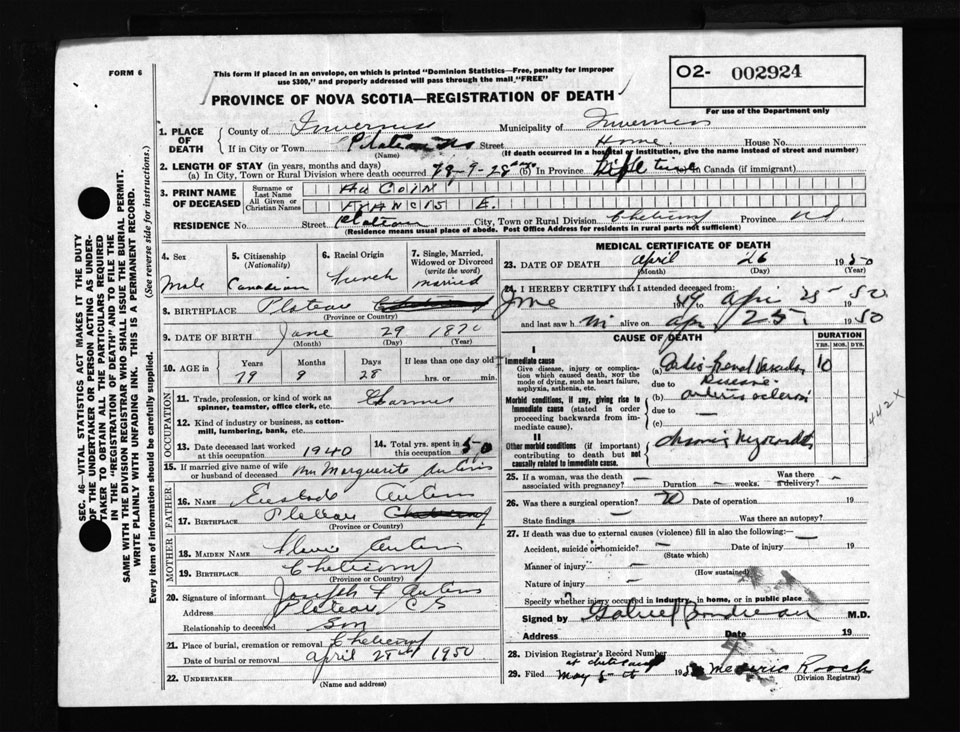 FORM 6
This form if placed in an envelope, on which is printed "Dominion Statistics—Free, penalty for improper
use $300," and properly addressed will pass through the mail "FREE"
O2- 002924
For use of the Department only
PROVINCE OF NOVA SCOTIA—REGISTRATION OF DEATH
1. PLACE OF DEATH
County of Inverness Municipality of Inverness
If in City or Town Plateau Street Home House No.
(Name) (If death occurred in a hospital or institution, give the name instead of street and number)
2. LENGTH OF STAY (in years, months and days)
(a) In City, Town or Rural Division where death occurred 79-9-28 days (b) In Province Life time in Canada (if immigrant)
3. PRINT NAME OF DECEASED
Surname or Last Name AUCOIN
All Given or Christian Names FRANCIS E.
RESIDENCE No. Street Plateau City, Town or Rural Division Cheticamp Province N.S.
(Residence means usual place of abode. Post Office Address for residents in rural parts not sufficient)
4. Sex Male
5. Citizenship (Nationality) Canadian
6. Racial Origin French
7. Single, Married, Widowed or Divorced (write the word) married
8. BIRTHPLACE Plateau Cheticamp
(Province or Country)
9. DATE OF BIRTH June 29 1870
(Month) (Day) (Year)
10. AGE in Years Months Days If less than one day old
79 9 28 hrs. or min.
OCCUPATION
11. Trade, profession, or kind of work as spinner, teamster, office clerk, etc. Farmer
12. Kind of industry or business, as cotton-mill, lumbering, bank, etc.
13. Date deceased last worked at this occupation 1940
14. Total yrs. spent in this occupation 50
15. If married give name of wife or husband of deceased Mrs Marguerite Aucoin
FATHER
16. NAME Aucoin
17. BIRTHPLACE Plateau Cheticamp
(Province or Country)
MOTHER
18. MAIDEN NAME Aucoin
19. BIRTHPLACE Cheticamp
(Province or Country)
20. Signature of informant Joseph F Aucoin
Address Plateau
Relationship to deceased Son
21. Place of burial, cremation or removal Cheticamp
Date of burial or removal April 28th 1950
22. UNDERTAKER
(Name and address)
MEDICAL CERTIFICATE OF DEATH
23. DATE OF DEATH April 26 1950
(Month) (Day) (Year)
24. I HEREBY CERTIFY that I attended deceased from:
June 1949 to Apr 25 1950
and last saw him alive on Apr 25, 1950
CAUSE OF DEATH
DURATION
YRS. MOS. DYS.
I
Immediate cause
Give disease, injury or complication which caused death, NOT the mode of dying, such as heart failure, asphyxia, asthenia, etc.
(a) Cardio-Renal Vascular Disease 10
due to
Morbid conditions, if any, giving rise to immediate cause (stated in order proceeding backwards from immediate cause).
(b) arteriosclerosis
due to —
(c)
II
Other morbid conditions (if important) contributing to death but not causally related to immediate cause.
chronic myocarditis
442X
25. If a woman, was the death associated with pregnancy? — Duration — weeks. Was there a delivery? —
26. Was there a surgical operation? no Date of operation 19
State findings — Was there an autopsy?
27. If death was due to external causes (violence) fill in also the following: —
Accident, suicide or homicide? — Date of injury 19
(State which)
Manner of injury —
(How sustained)
Nature of injury —
Specify whether injury occurred in industry, in home, or in public place
Signed by Gabriel Boudreau M.D.
Address Date 19
28. Division Registrar's Record Number
29. Filed May 195
(Division Registrar)
SEC. 46—VITAL STATISTICS ACT MAKES IT THE DUTY
OF THE UNDERTAKER OR PERSON ACTING AS UNDER-
TAKER TO OBTAIN ALL THE PARTICULARS REQUIRED
IN THE "REGISTRATION OF DEATH" AND TO FILE THE
SAME WITH THE DIVISION REGISTRAR WHO SHALL ISSUE THE BURIAL PERMIT.
WRITE PLAINLY WITH UNFADING INK. THIS IS A PERMANENT RECORD.
Every item of information should be carefully supplied. (See reverse side for instructions.)